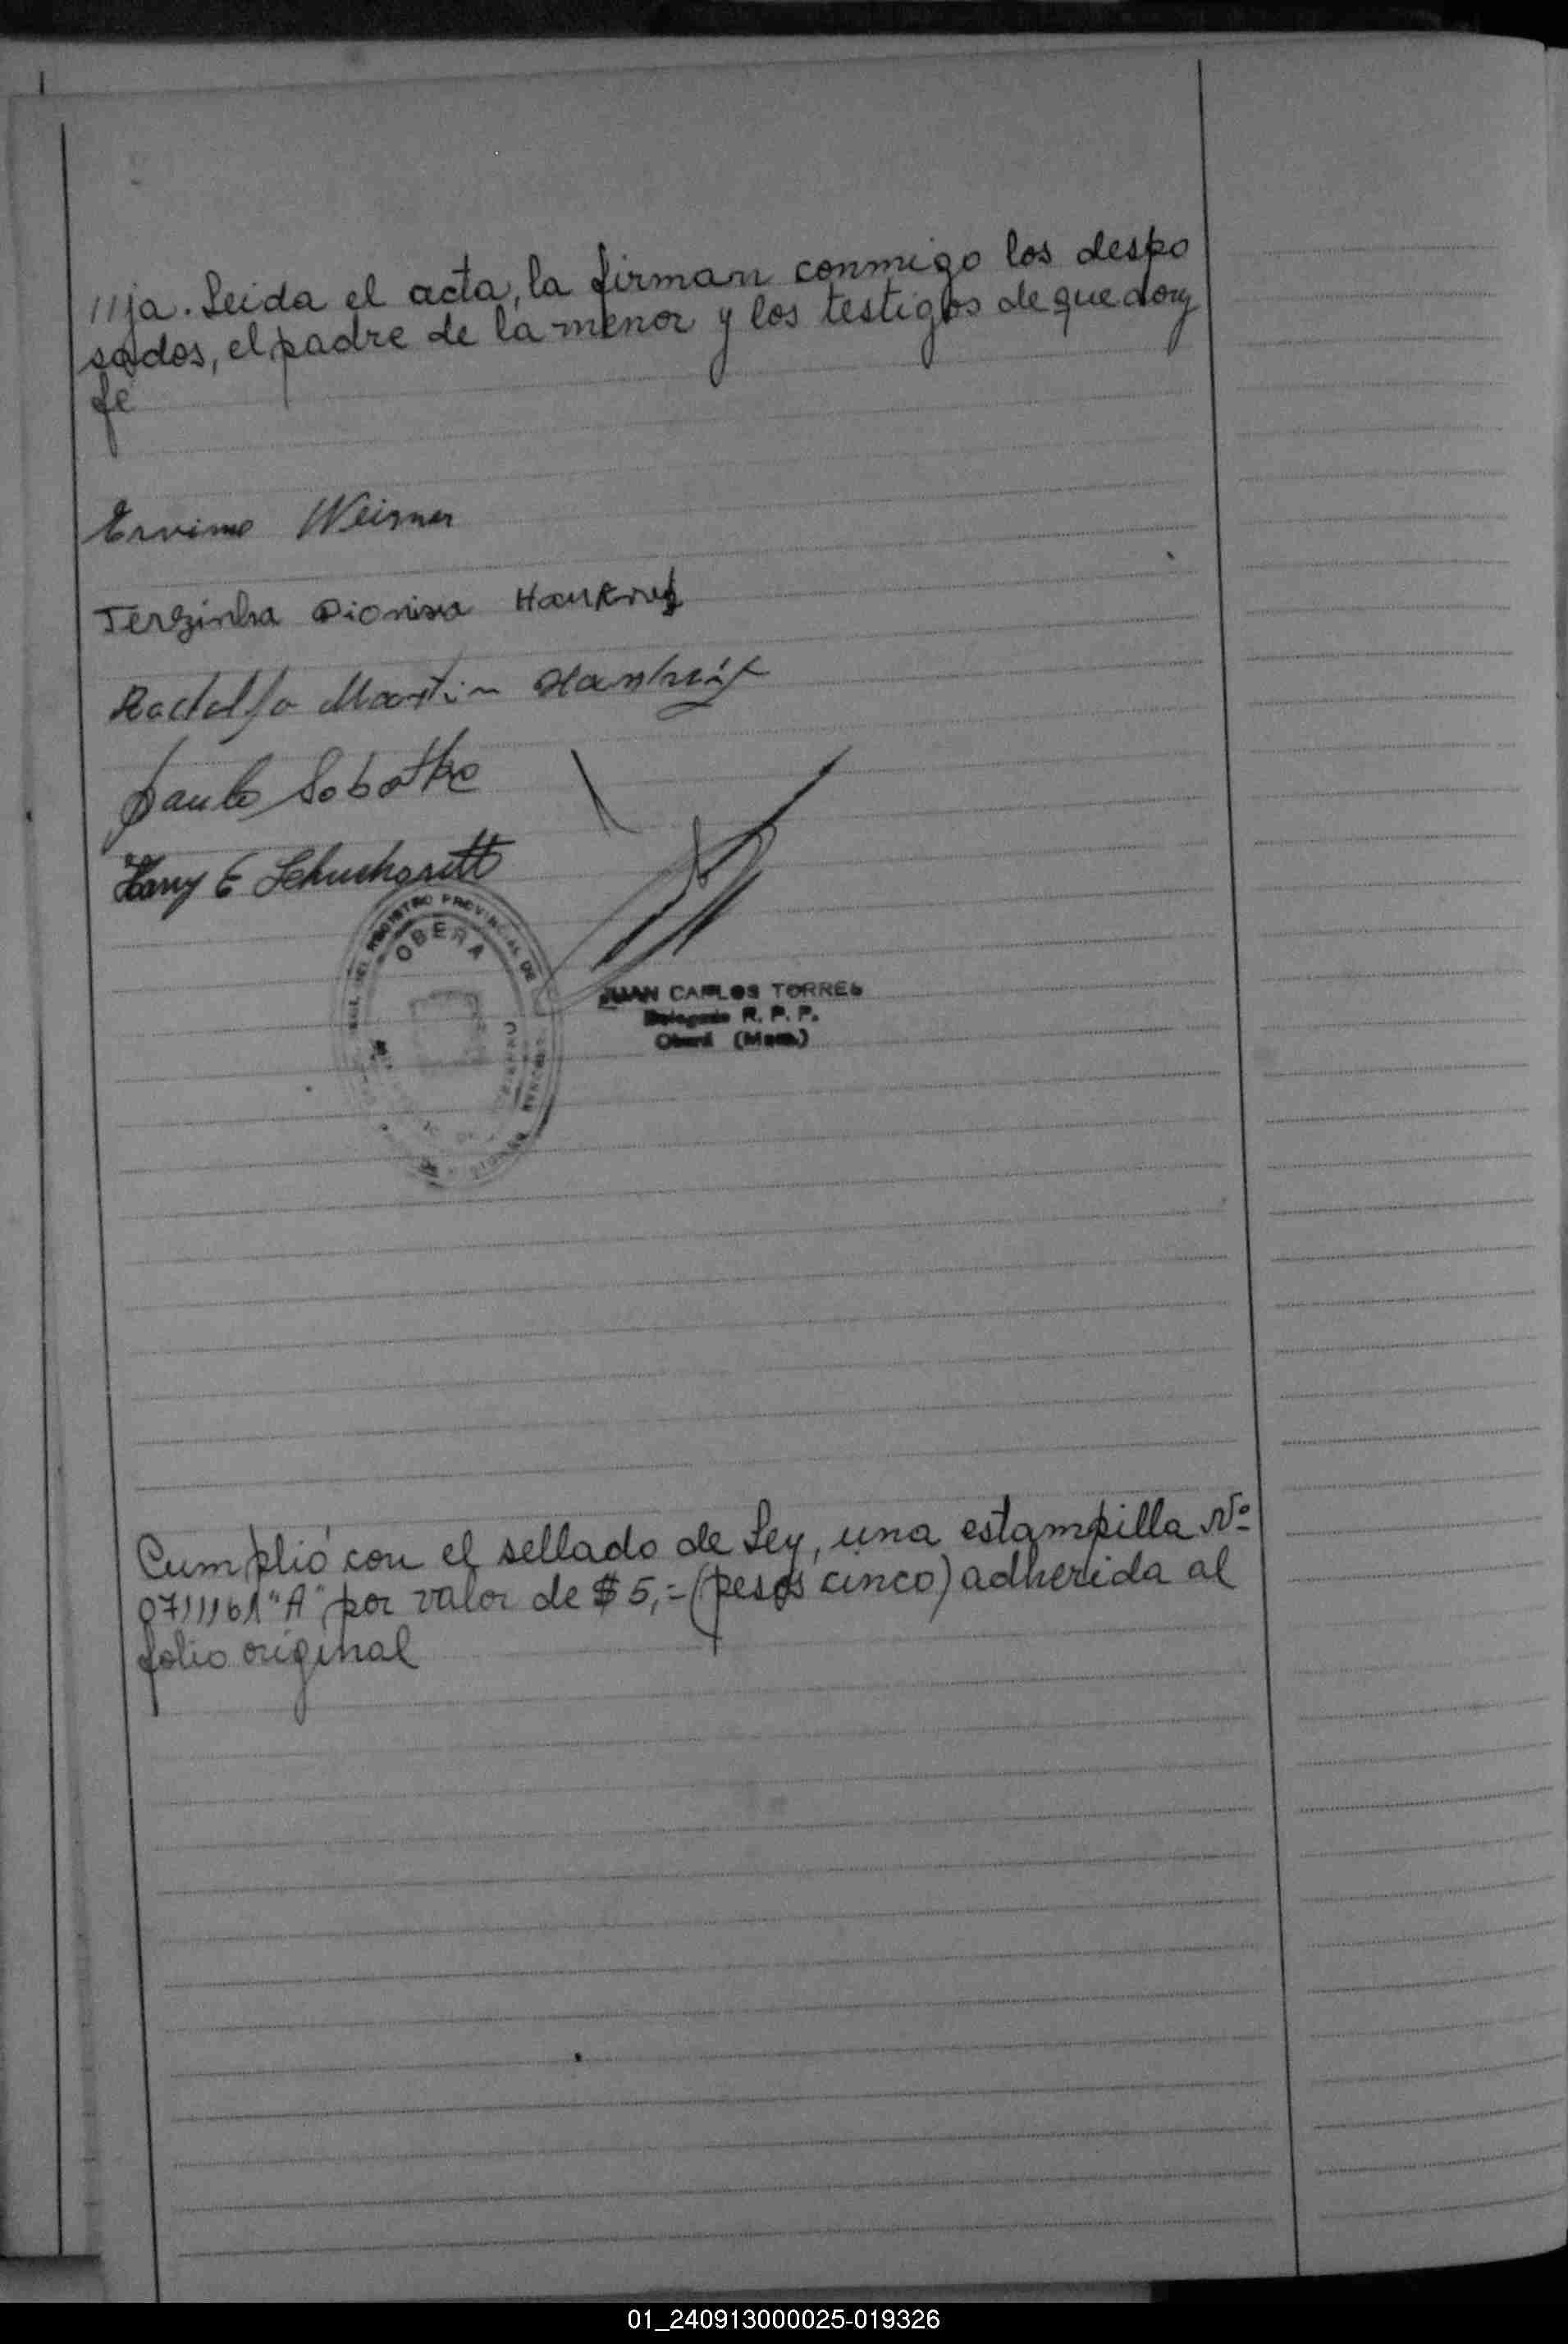 11ja. Leida el acta, la firman conmigo los despo
sados, el padre de la menor y los testigos de que doy
fe
Ervino Weimer
Terezinha Dionisia
Rodolfo Martin
Paulo Sobotka
Harry E Schuchardtt
REGISTRO PROVINCIAL DE
OBERA
JUAN CARLOS TORRES
Delegado R. P. P.
Oberá (Mnes.)
Cumplió con el sellado de Ley, una estampilla Nº
0711161 "A" por valor de $ 5,= (pesos cinco) adherida al
folio original
01_240913000025-019326